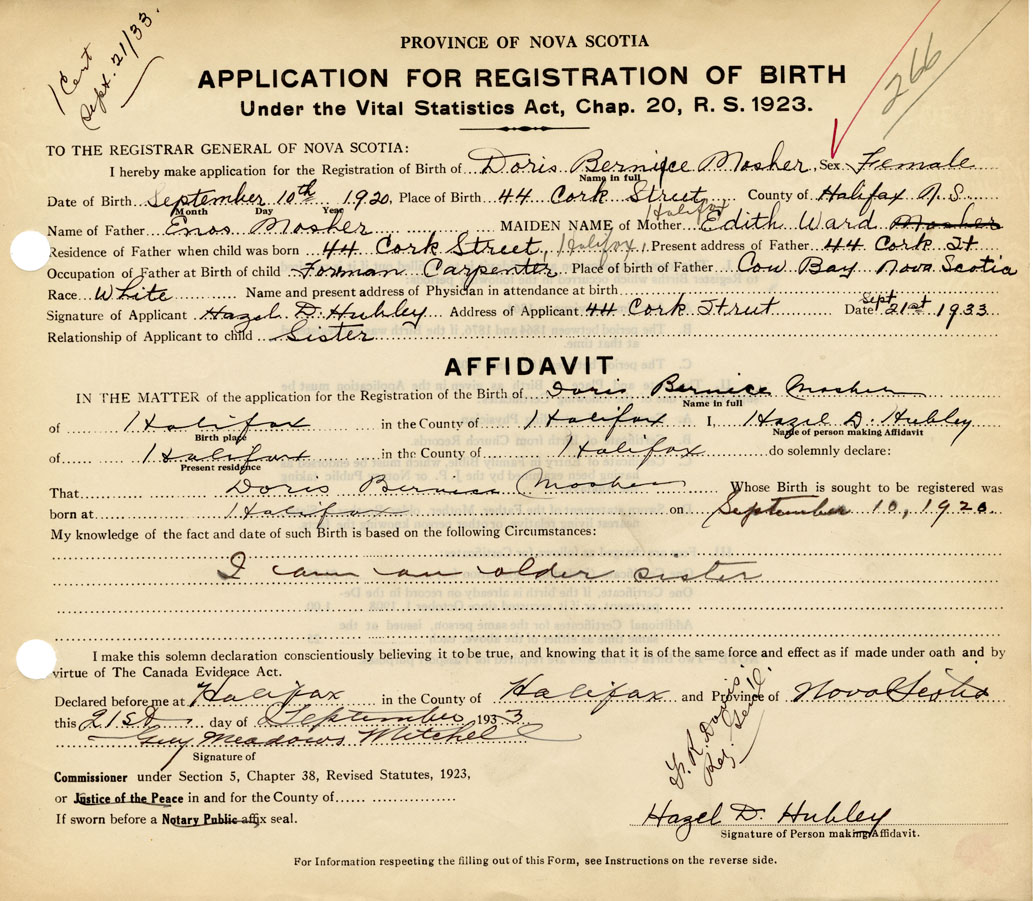 1 Cent
Sept. 21/33.
266
PROVINCE OF NOVA SCOTIA
APPLICATION FOR REGISTRATION OF BIRTH
Under the Vital Statistics Act, Chap. 20, R. S. 1923.
TO THE REGISTRAR GENERAL OF NOVA SCOTIA:
I hereby make application for the Registration of Birth of Doris Bernice Mosher, Sex Female
Name in full
Date of Birth September 10th 1920. Place of Birth 44 Cork Street, Halifax County of Halifax N.S.
Month Day Year
Name of Father Enos Mosher MAIDEN NAME of Mother Edith Ward Mosher
Residence of Father when child was born 44 Cork Street, Halifax Present address of Father 44 Cork St
Occupation of Father at Birth of child Forman Carpenter Place of birth of Father Cow Bay Nova Scotia
Race White Name and present address of Physician in attendance at birth
Signature of Applicant Hazel D. Hubley Address of Applicant 44 Cork Street Date Sept 21st 1933
Relationship of Applicant to child Sister
AFFIDAVIT
IN THE MATTER of the application for the Registration of the Birth of Doris Bernice Mosher
Name in full
of Halifax in the County of Halifax I, Hazel D. Hubley
Birth place Name of person making Affidavit
of Halifax in the County of Halifax do solemnly declare:
Present residence
That Doris Bernice Mosher Whose Birth is sought to be registered was
born at Halifax on September 10, 1920.
My knowledge of the fact and date of such Birth is based on the following Circumstances:
I am an older sister
I make this solemn declaration conscientiously believing it to be true, and knowing that it is of the same force and effect as if made under oath and by
virtue of The Canada Evidence Act.
Declared before me at Halifax in the County of Halifax and Province of Nova Scotia
this 21st day of September 1933
Guy Meadows Mitchell
Signature of
Commissioner under Section 5, Chapter 38, Revised Statutes, 1923,
or Justice of the Peace in and for the County of
If sworn before a Notary Public affix seal.
Davis
Reg. Gen'l.
Hazel D. Hubley
Signature of Person making Affidavit.
For Information respecting the filling out of this Form, see Instructions on the reverse side.